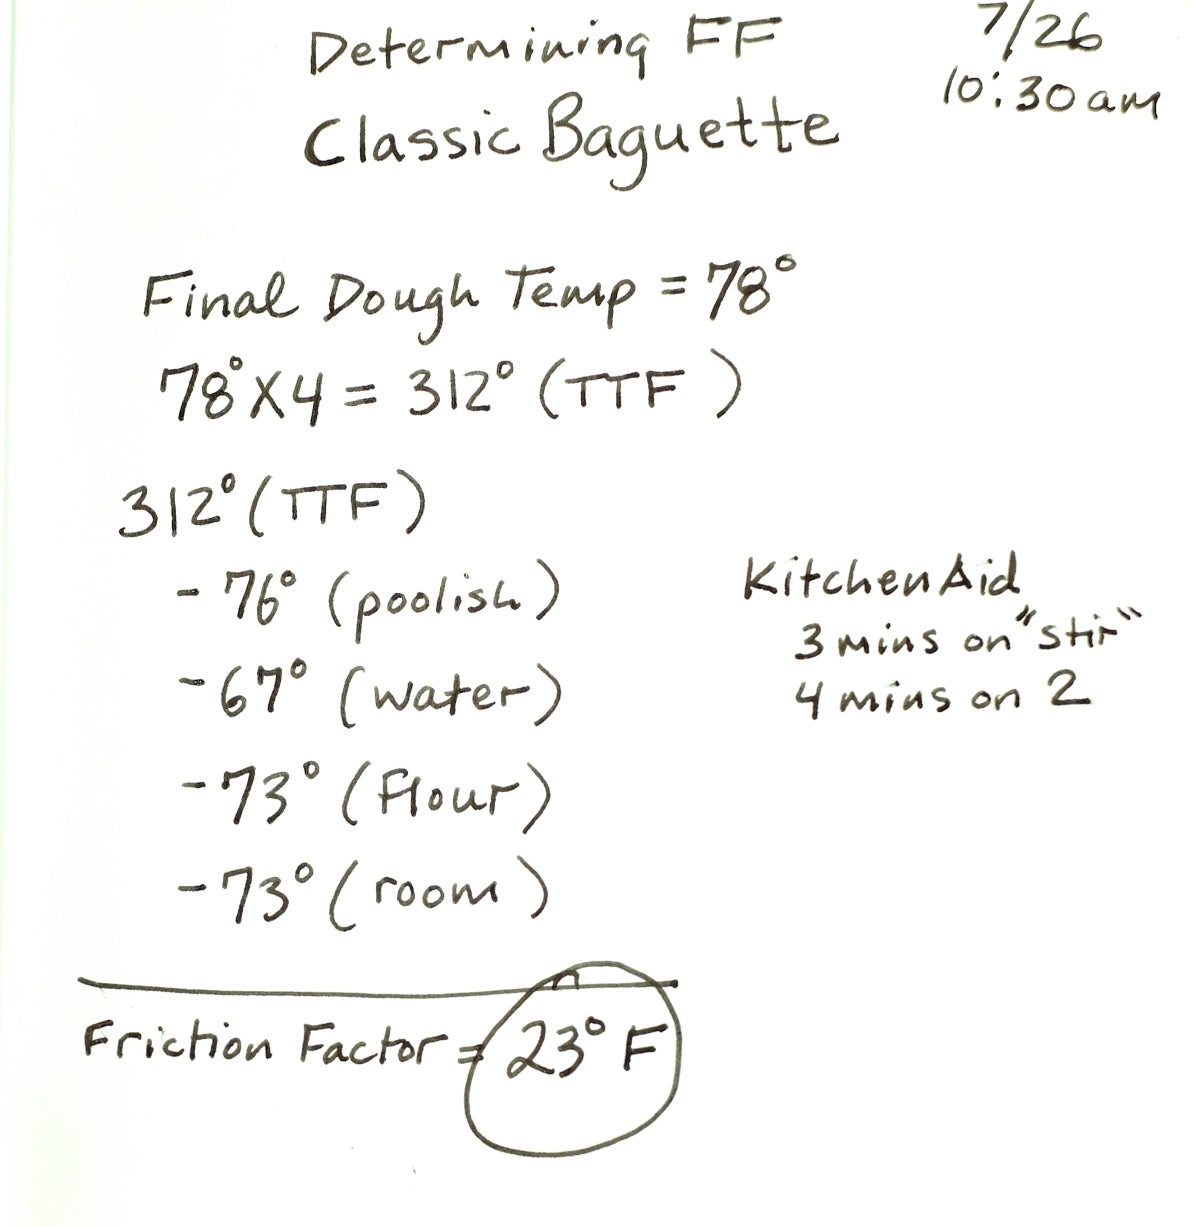 Determining FF
Classic Baguette
7/26
10:30 am
Final Dough Temp = 78°
78° X 4 = 312° (TTF)
312° (TTF)
- 76° (poolish)
- 67° (water)
- 73° (flour)
- 73° (room)
KitchenAid
3 mins on "stir"
4 mins on 2
Friction Factor = 23° F